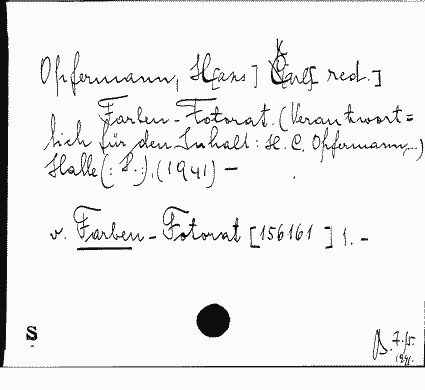 Opfermann, H[ans] Carl [red.]
Farben-Fotorat. (Verantwort=
lich für den Inhalt: H. C. Opfermann,..)
Halle (: S.:). (1941) —
v. Farben-Fotorat [156161 ] 1. -
S
B. 7./5.
1941.